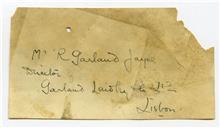 Mr R Garland Jayne
Director
Garland Laidley & Co Ltd
Lisbon.